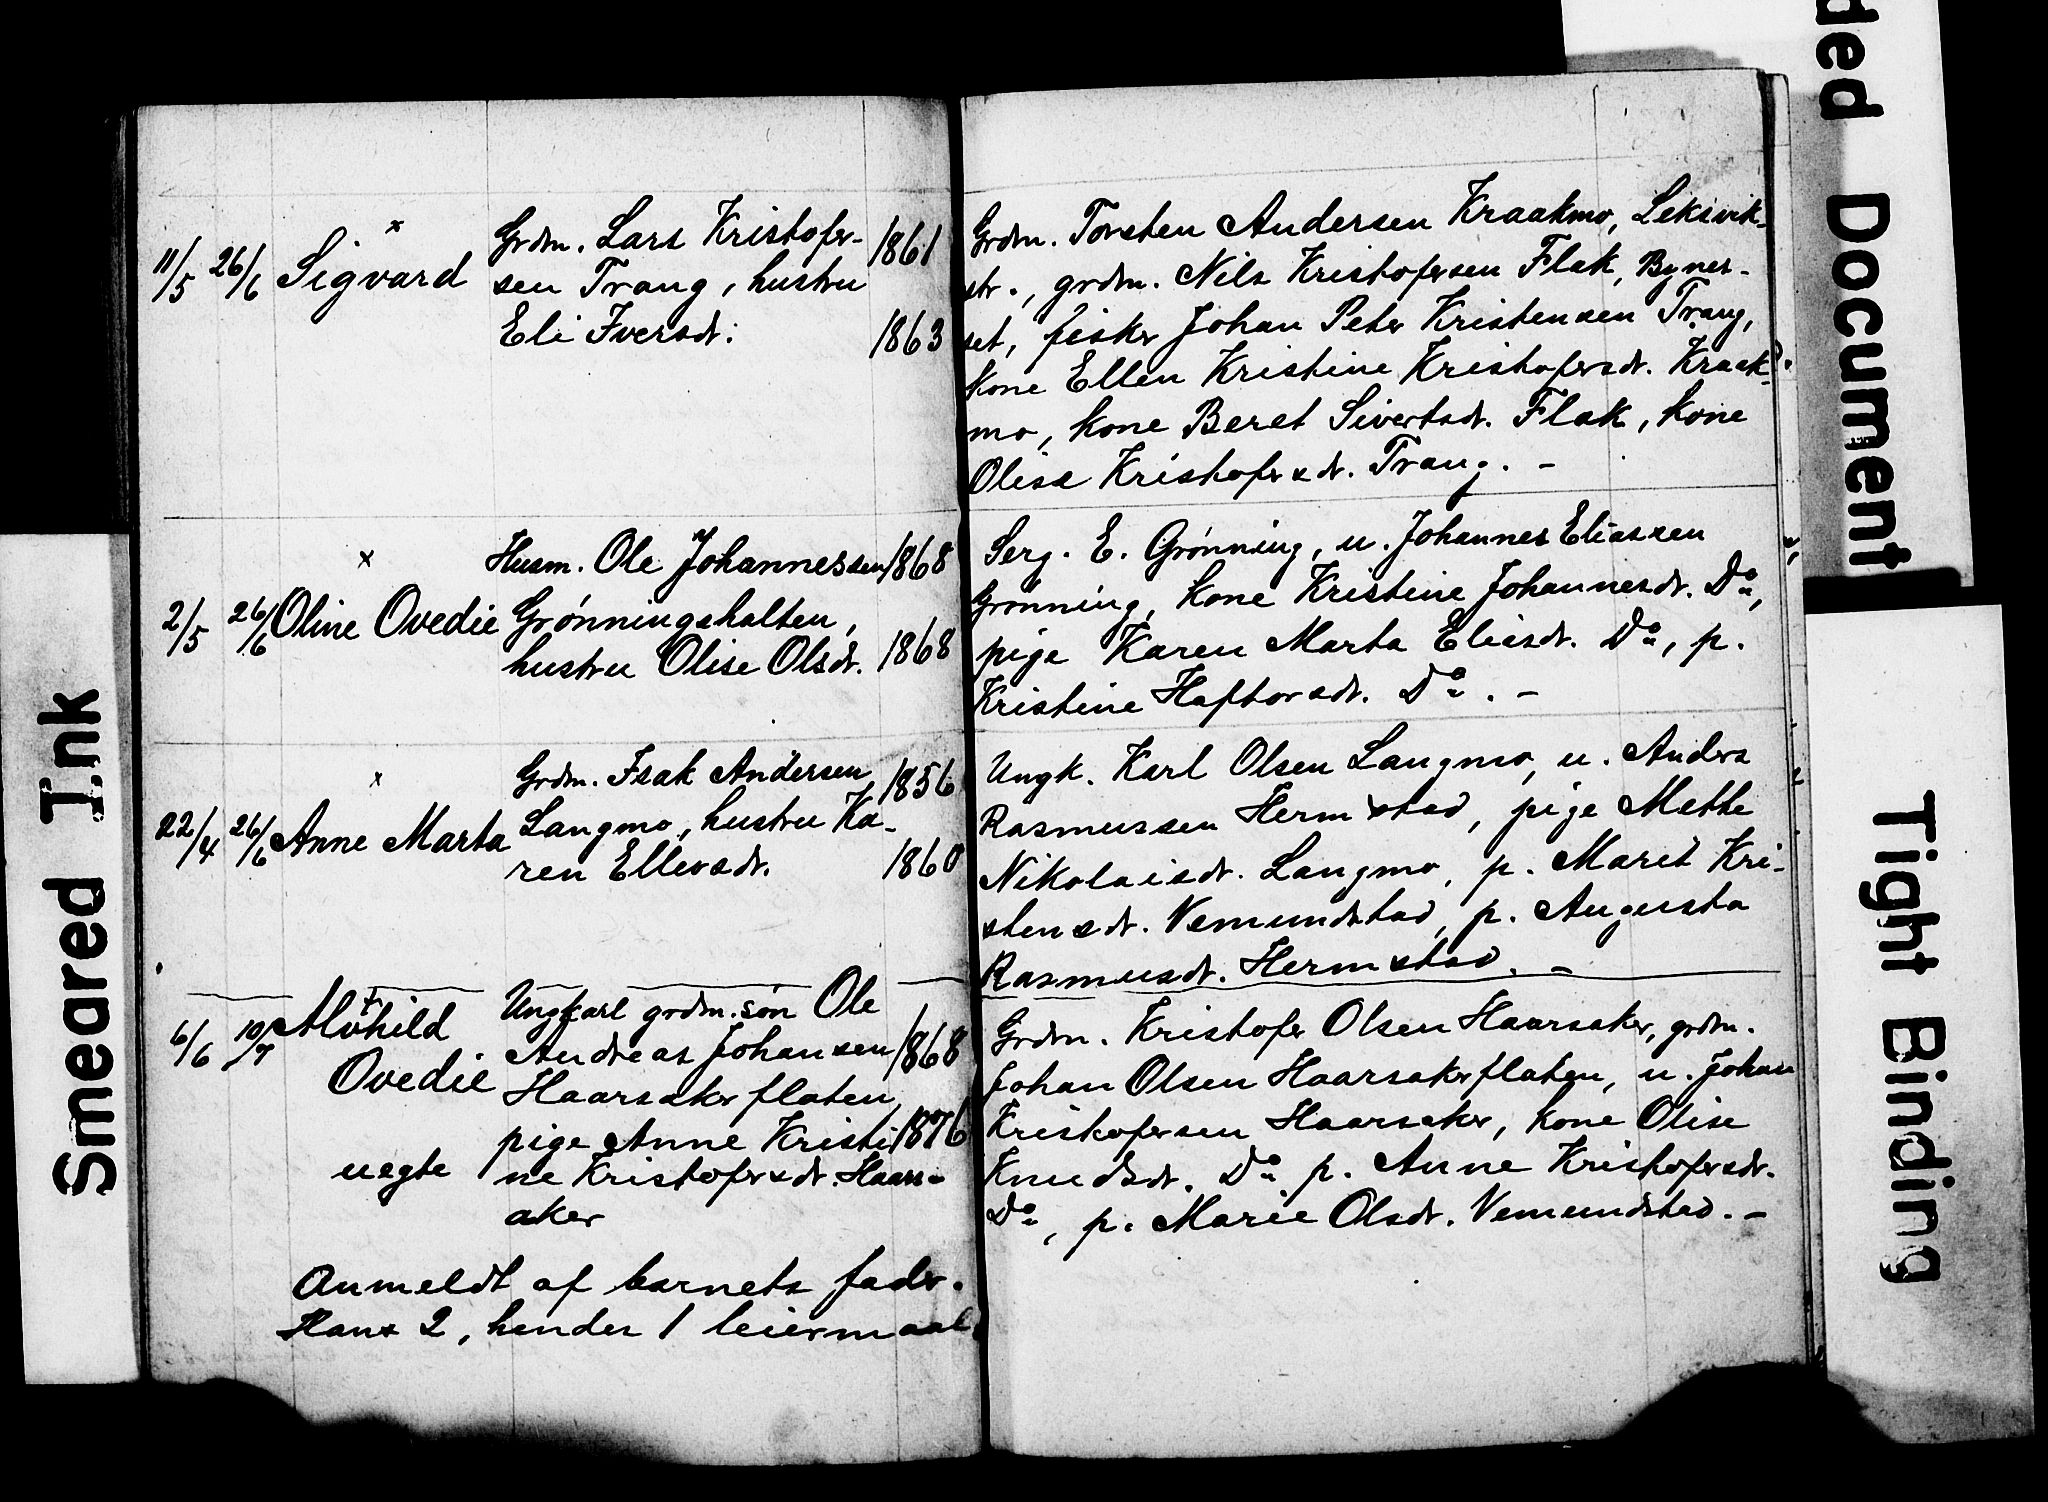 ded Document
Smeared Ink
Tight Binding
11/5 26/6 Sigvard x
Grdm. Lars Kristofer- 1861
sen Trang, hustru
Eli Iversdt. 1863
Grdm. Torsten Andersen Kraakmo, Leksvik-
str., grdm. Nils Kristofersen Flak, Bynes-
set, fisker Johan Peter Kristensen Trang,
kone Ellen Kristine Kristofersdt. Kraak-
mo, kone Beret Sivertsdt. Flak, kone
Olise Kristofersdt. Trang. -
x
2/5 26/6 Oline Ovedie
Husm. Ole Johannessen 1868
Grønningshalten,
hustru Olise Olsdt. 1868
Serg. E. Grønning, u. Johannes Eliassen
Grønning, kone Kristine Johannesdt. Do,
pige Karen Marta Eliasdt. Do, p.
Kristine Haftorsdt. Do. -
x
22/4 26/6 Anne Marta
Grdm. Isak Andersen 1856
Langmo, hustru Ka-
ren Ellevsdt. 1860
Ungk. Karl Olsen Langmo, u. Anders
Rasmussen Hermstad, pige Mette
Nikolaisdt. Langmo, p. Marit Kri-
stensdt. Vemundstad, p. Augusta
Rasmusdt. Hermstad. -
6/6 10/7 Alvhild
Ovedie
uegte
Ungkarl grdm.søn Ole
Andreas Johansen 1868
Haarsakerflaten,
pige Anne Kristi- 1876
ne Kristofersdt. Haars-
aker
Anmeldt af barnets fader.
Hans 2, hendes 1 leiermaal.
Grdm. Kristofer Olsen Haarsaker, grdm.
Johan Olsen Haarsakerflaten, u. Johan
Kristofersen Haarsaker, kone Olise
Knudsdt. Do p. Anne Kristofersdt.
Do, p. Marie Olsdt. Vemundstad. -